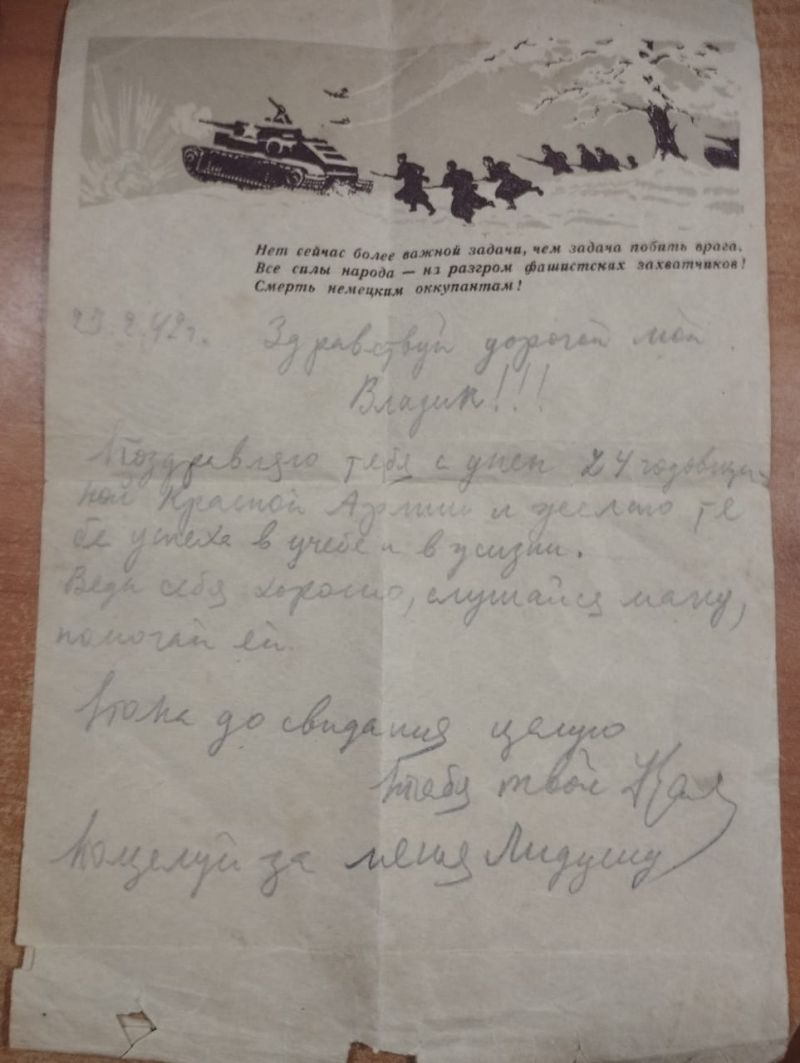 Нет сейчас более важной задачи, чем задача побить врага.
Все силы народа — на разгром фашистских захватчиков!
Смерть немецким оккупантам!
23.2.42г. Здравствуй дорогой мой
Владик!!!
Поздравляю тебя с днем 24 годовщи-
ной Красной Армии и желаю те
бе успеха в учебе и в жизни.
Веди себя хорошо, слушайся маму,
помогай ей.
Пока до свидания целую
тебя твой
Поцелуй за меня Лидушу